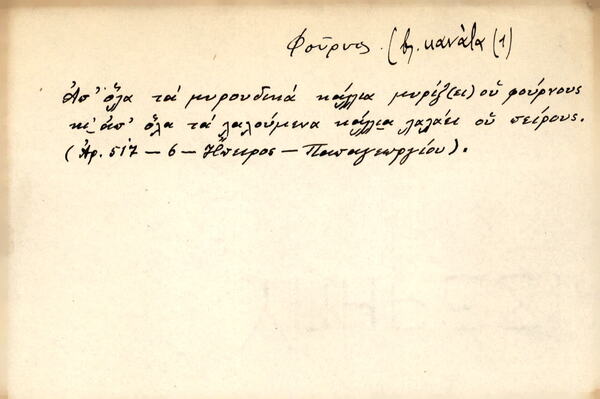 Φοῦρνος. (βλ. κανάτα (1)
Ἀπ' ὅλα τά μυρουδικά κάλλια μυρίζ(ει) οὑ φούρνους
κι ἀπ' ὅλα τά λαλούμενα κάλλια λαλάει οὑ πείρους.
(Ἀρ. 517 – 6 – Ἤπειρος – Παπαγεωργίου).